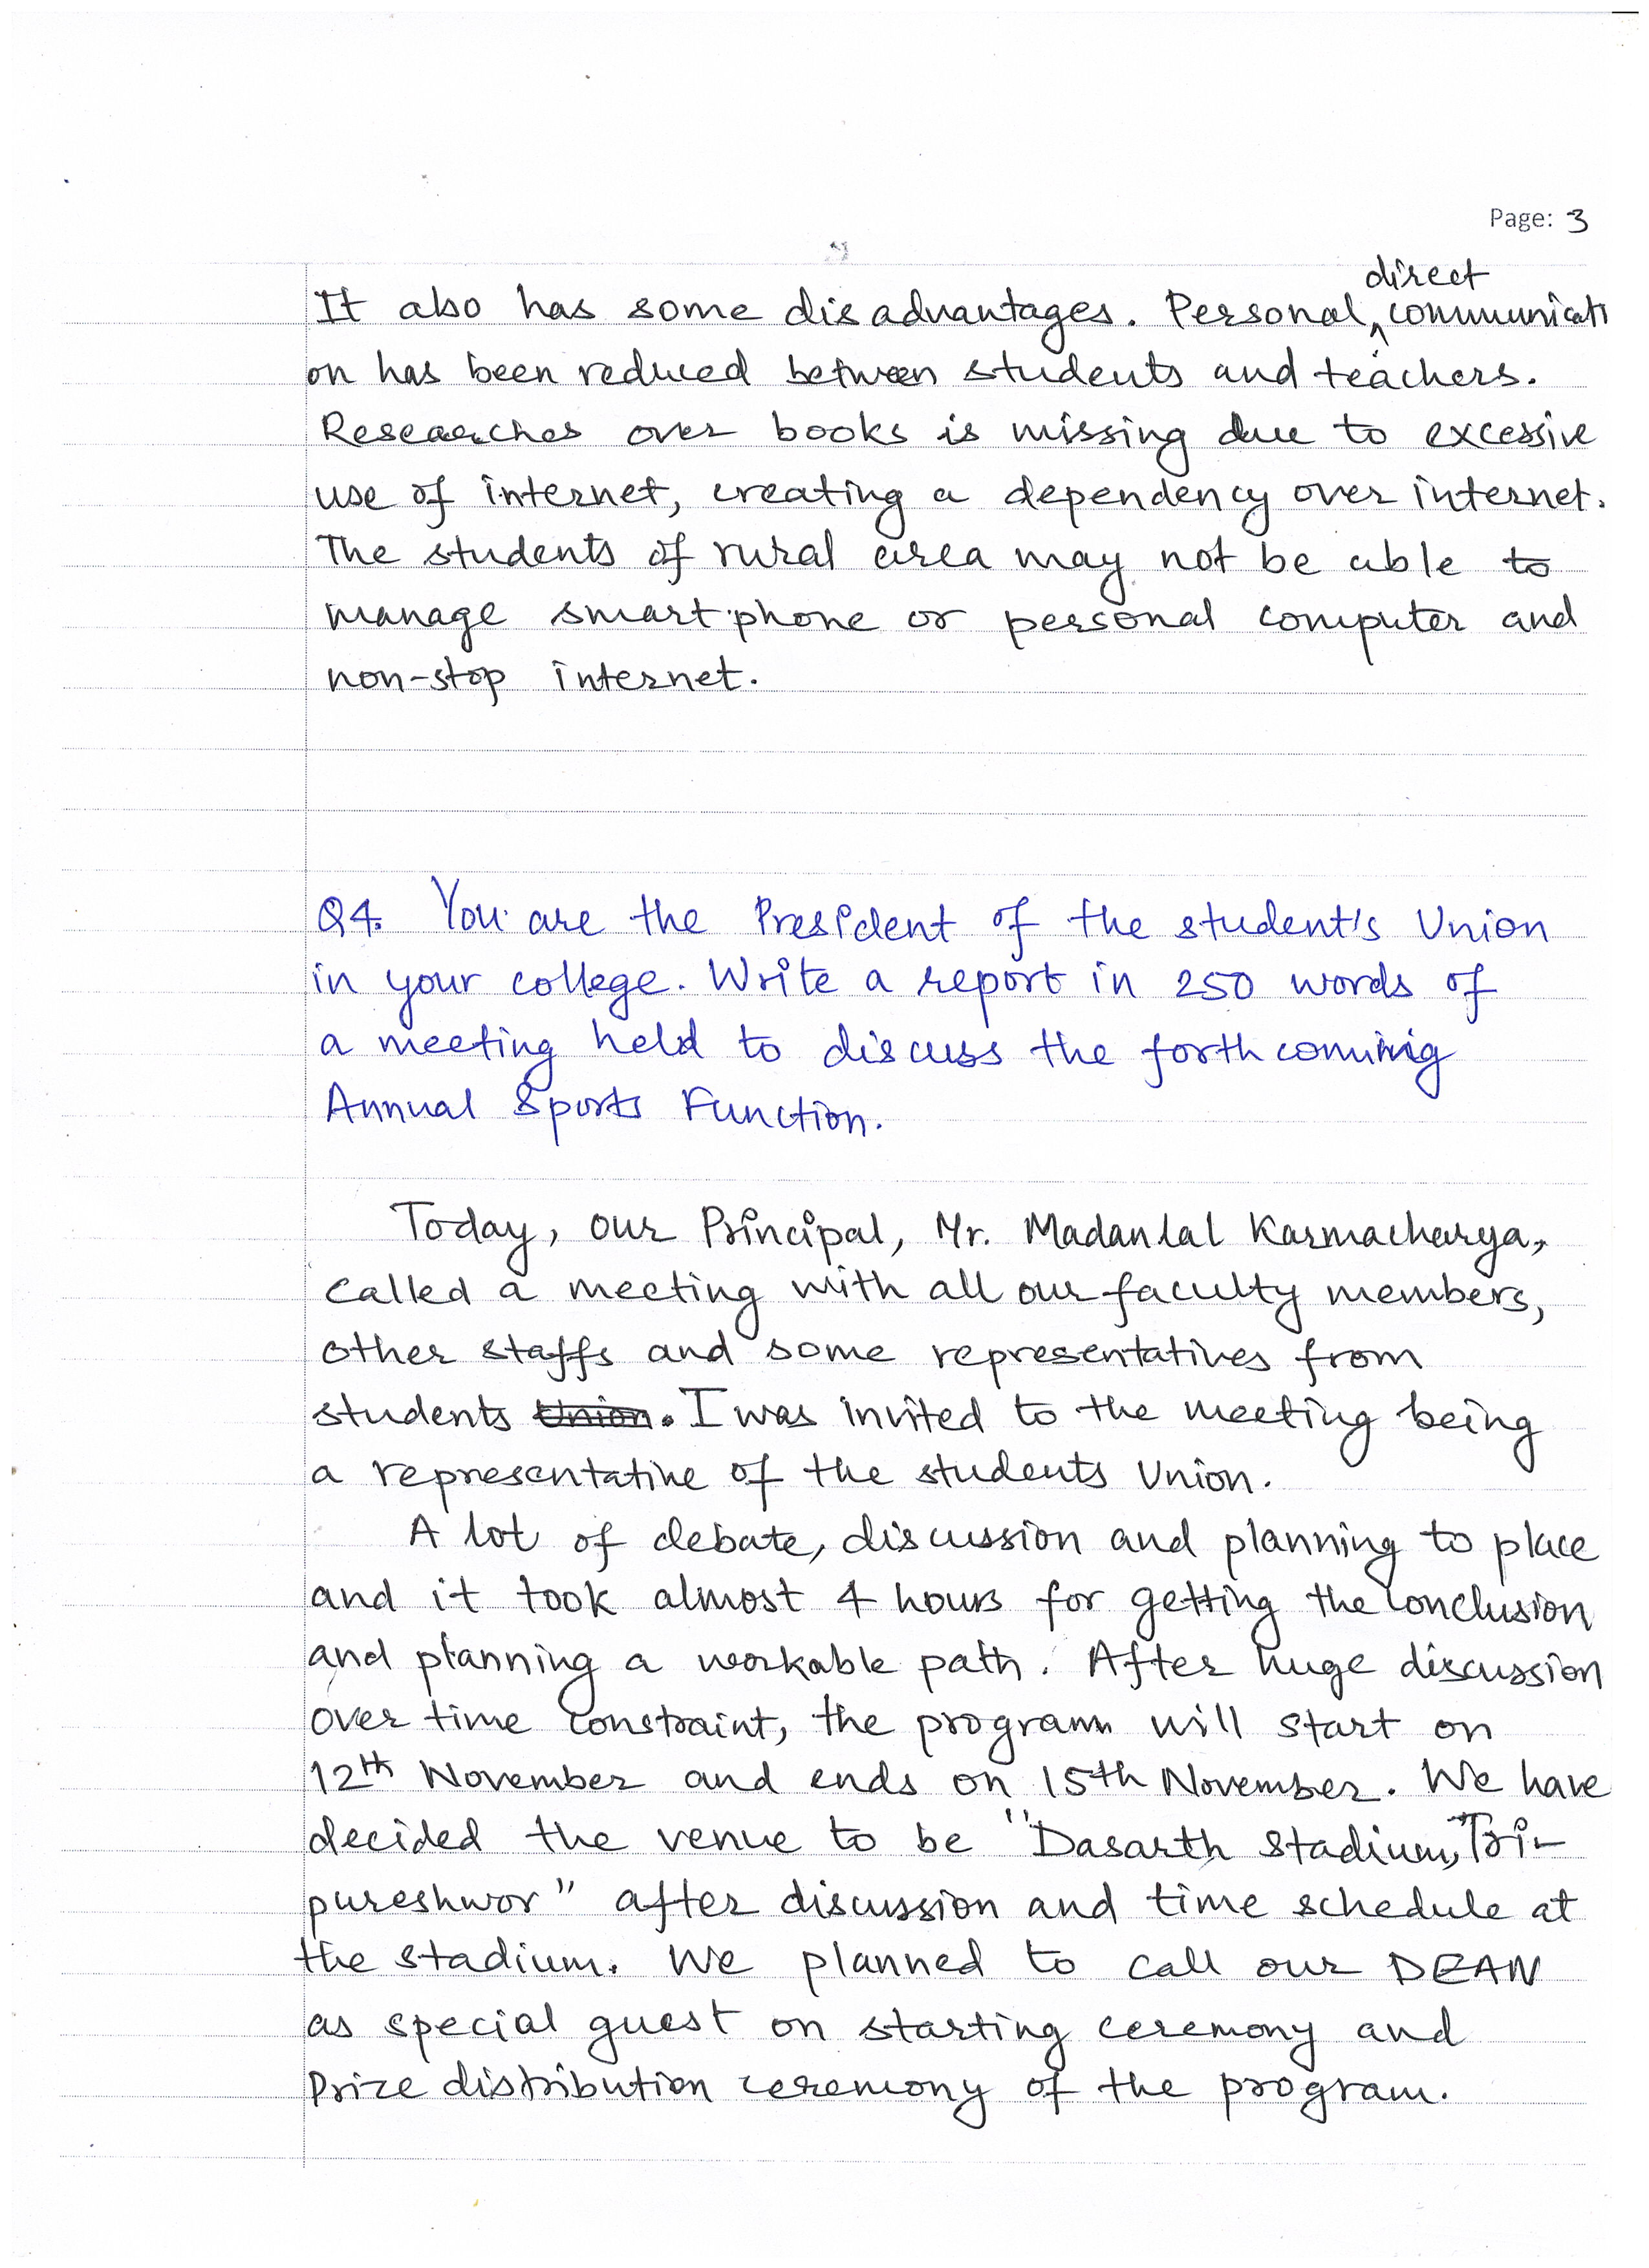 Page: 3
It also has some disadvantages. Personal direct communicati
on has been reduced between students and teachers.
Researches over books is missing due to excessive
use of internet, creating a dependency over internet.
The students of rural area may not be able to
manage smart phone or personal computer and
non-stop internet.
Q4. You are the President of the student's Union
in your college. Write a report in 250 words of
a meeting held to discuss the forthcoming
Annual Sports Function.
Today, our Principal, Mr. Madanlal Karmacharya,
called a meeting with all our faculty members,
other staffs and some representatives from
students Union. I was invited to the meeting being
a representative of the students Union.
A lot of debate, discussion and planning to place
and it took almost 4 hours for getting the conclusion
and planning a workable path. After huge discussion
over time constraint, the program will start on
12th November and ends on 15th November. We have
decided the venue to be "Dasarth Stadium, Tri-
pureshwor" after discussion and time schedule at
the stadium. We planned to call our DEAN
as special guest on starting ceremony and
Prize distribution ceremony of the program.